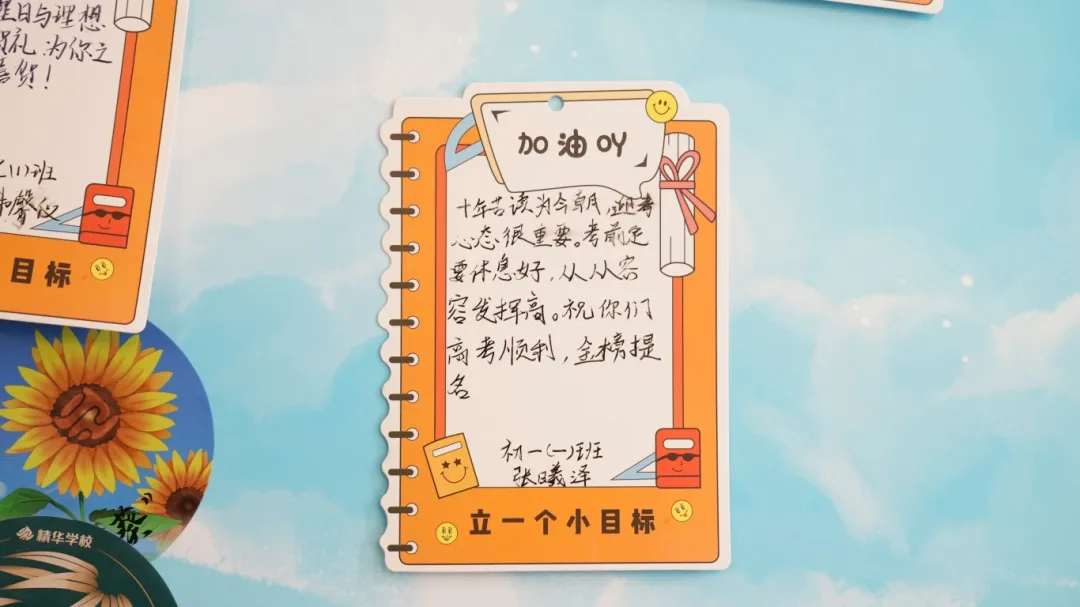 星日与理想
礼,为你立
喜货!
(1)班
馨仪
目标
加油吖
十年苦读为今朝,迎考
心态很重要。考前定
要休息好,从从容
容发挥高。祝你们
高考顺利,金榜提
名
初一(一)班
张曦泽
立一个小目标
精华学校